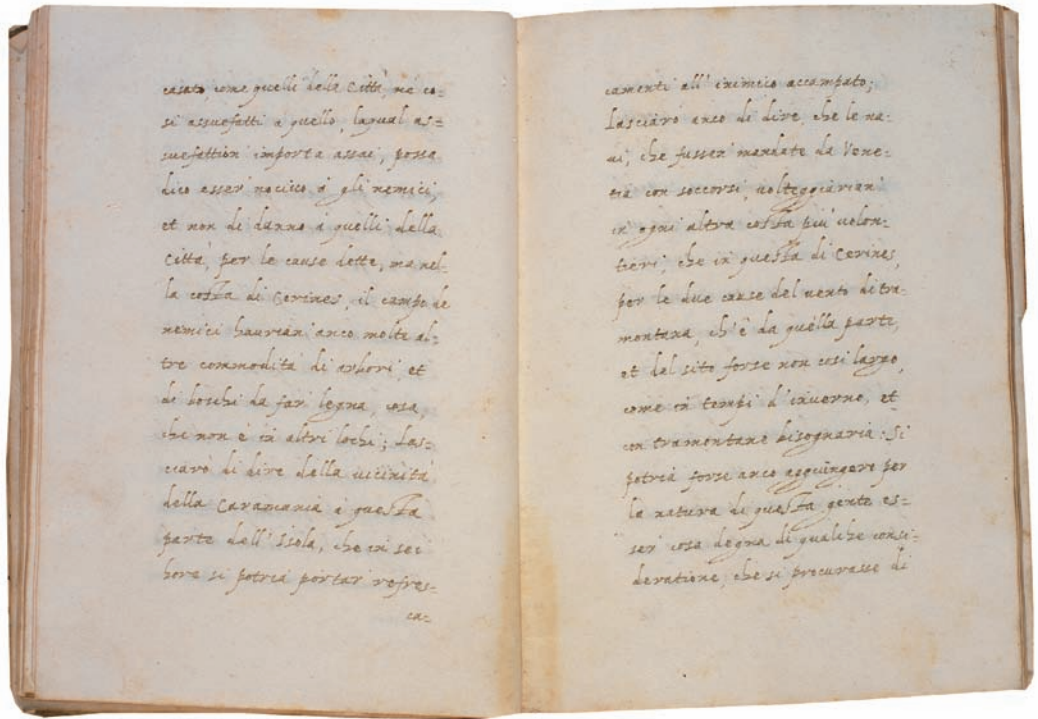 casato, come quelli della Città, ne co=
si assuefatti a quello, laqual as=
suefattion importa assai, possa
dico esser nocivo à gli nemici,
et non di danno à quelli della
Città, per le cause dette, ma nel=
la costa di Cerines, il campo de
nemici haurian' anco molte al=
tre commodità di arbori, et
di boschi da far legna, cosa,
che non è in altri lochi; Las=
ciarò di dire della uicinità
della Caramania à questa
parte dell' Isola, che in sei
hore si potria portar refres=
ca=
camenti all' inimico accampato;
Lasciarò anco di dire, che le na=
ui, che fusser mandate da Vene=
tia con soccorsi, uolteggiarian'
in ogni altra costa più uolon=
tieri, che in questa di Cerines,
per le due cause del uento di tra=
montana, ch' è da quella parte,
et del sito forse non cosi largo,
come in tempi d' inuerno, et
con tramontane bisognaria: Si
potria forse anco aggiungere per
la natura di questa gente es=
ser cosa degna di qualche consi=
deratione, che si procurasse di